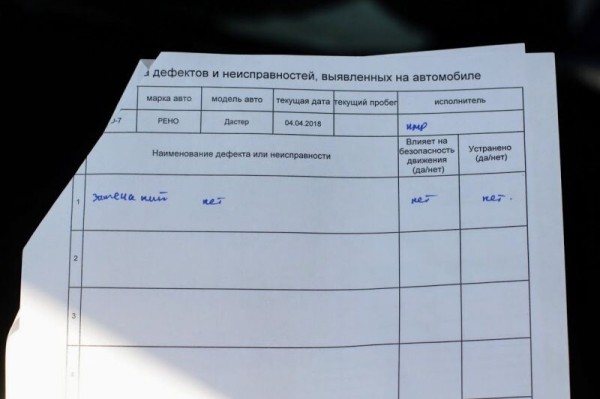 дефектов и неисправностей, выявленных на автомобиле
марка авто модель авто текущая дата текущий пробег исполнитель
-7 РЕНО Дастер 04.04.2018
Наименование дефекта или неисправности Влияет на безопасность движения (да/нет) Устранено (да/нет)
1 нет нет нет.
2
3